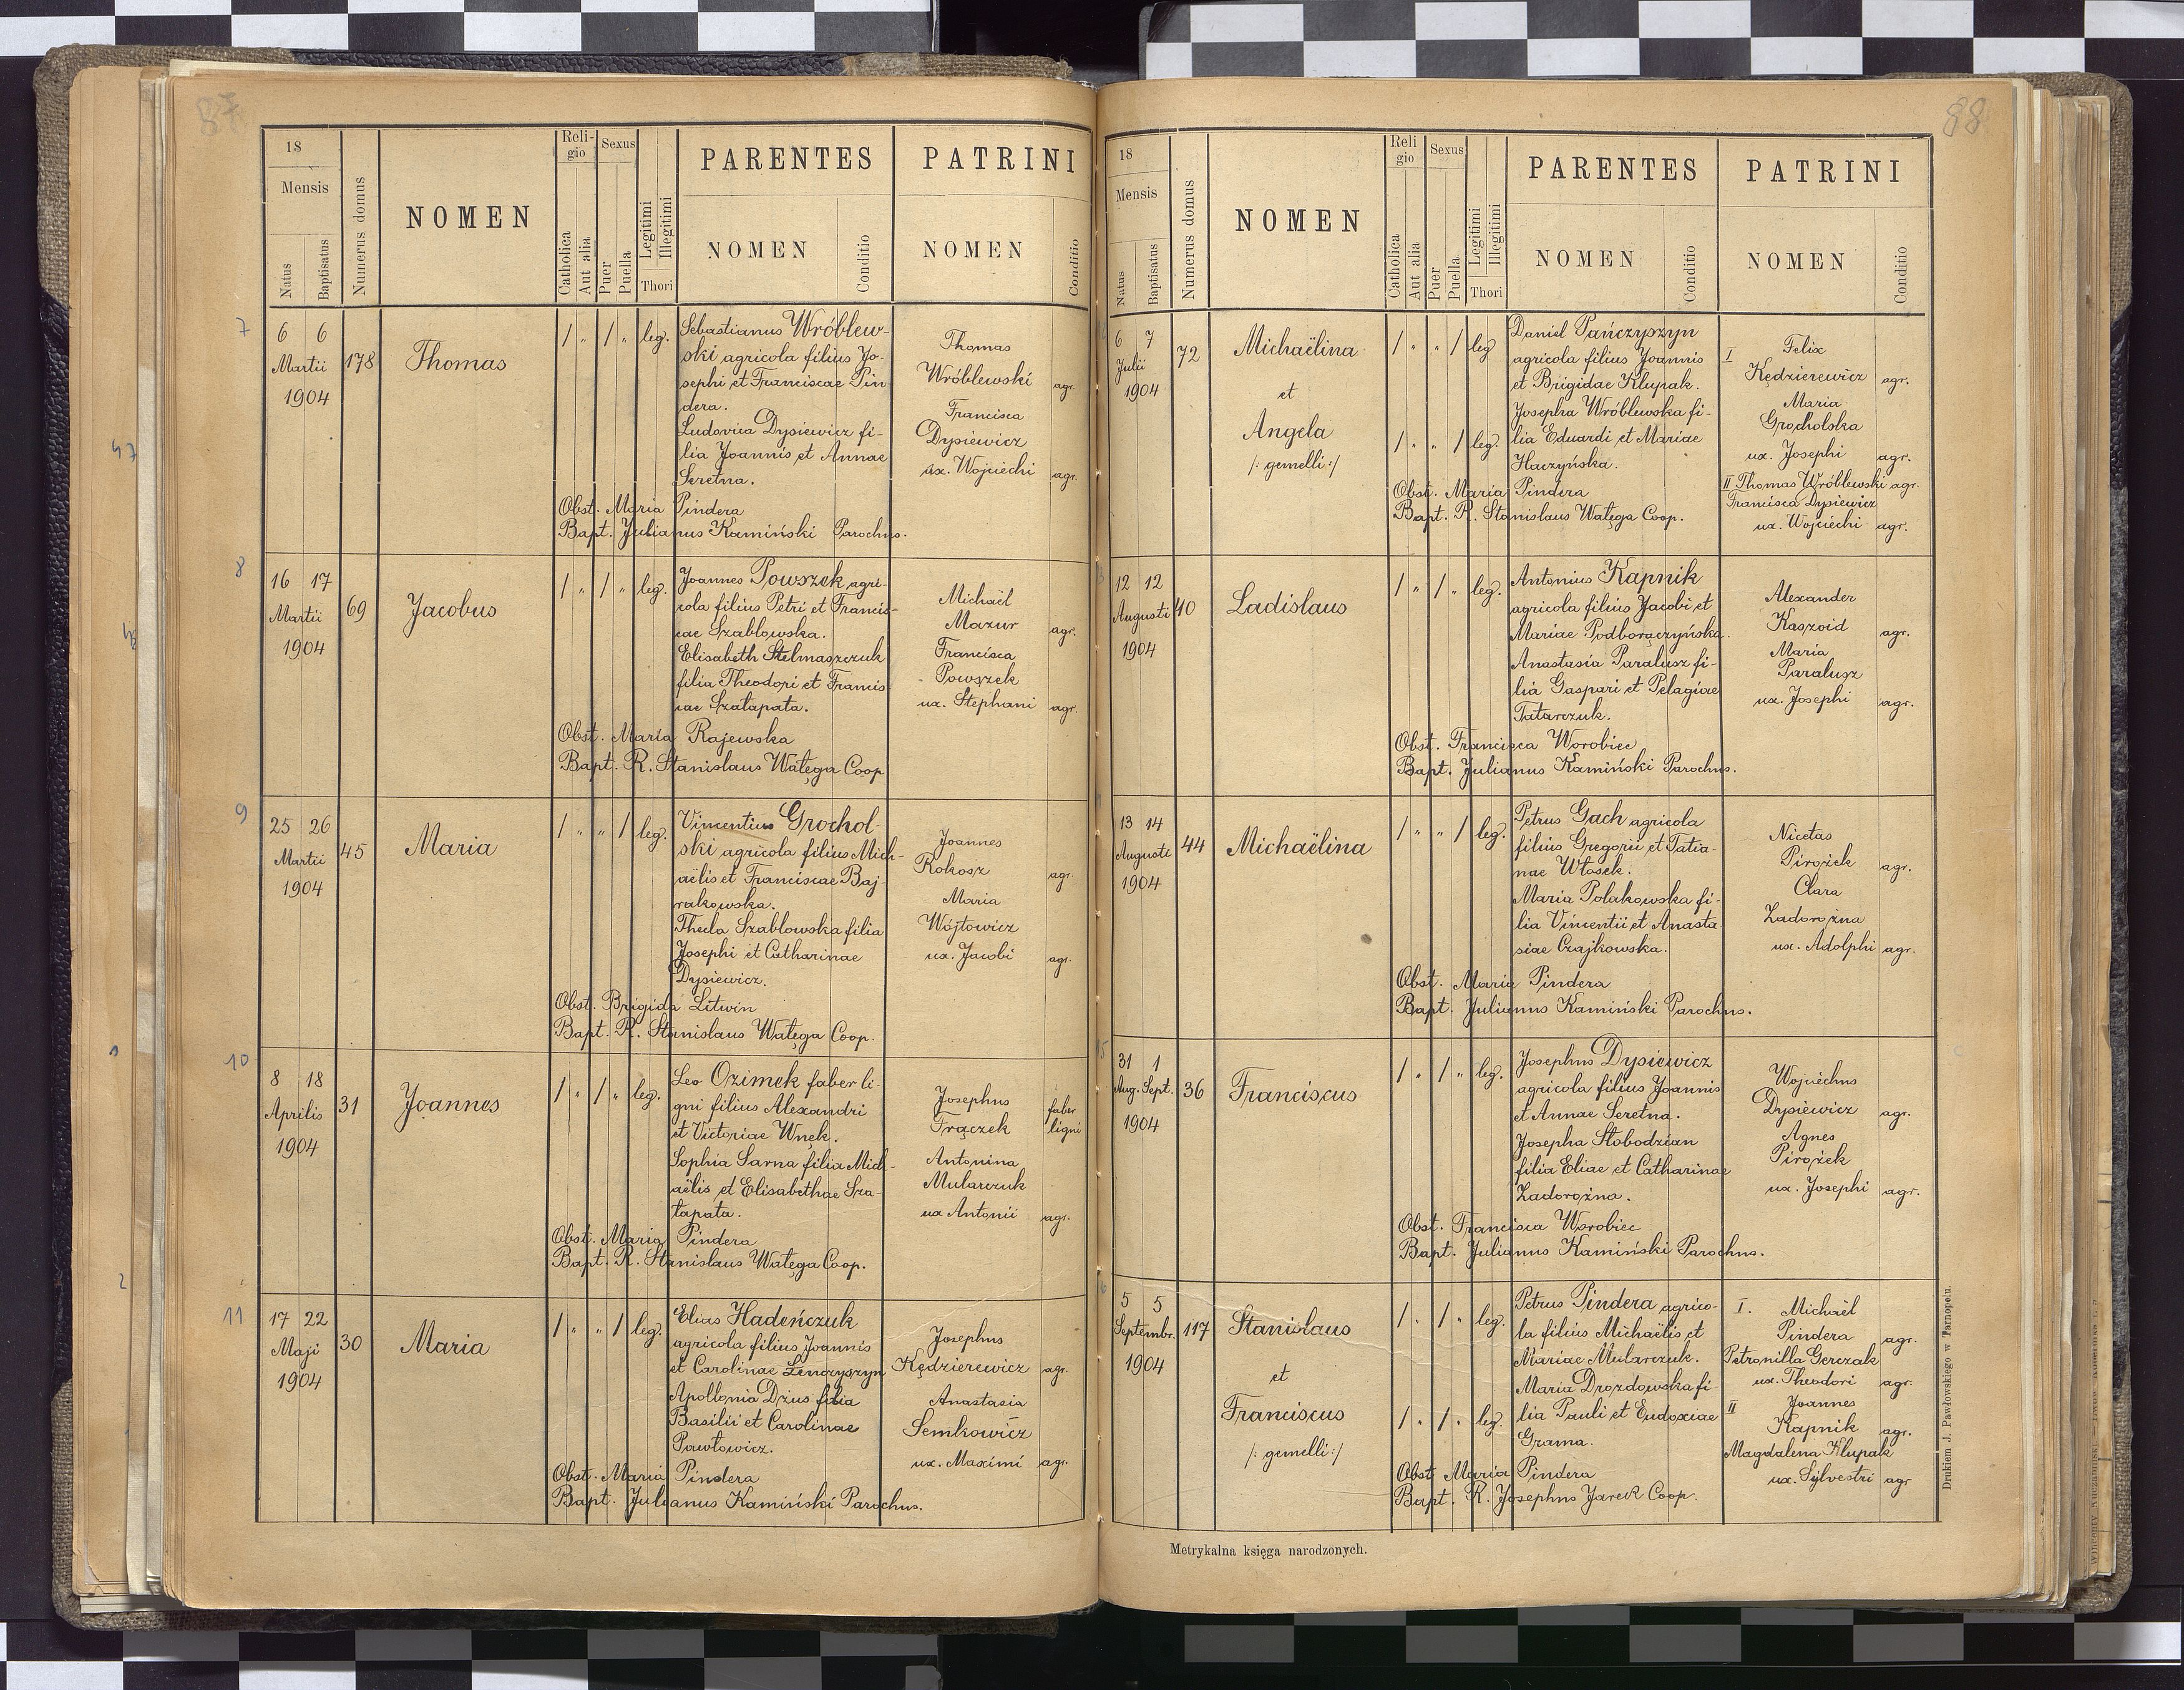 87
18
Mensis
Natus
Baptisatus
Numerus domus
NOMEN
Reli-
gio
Catholica
Aut alia
Sexus
Puer
Puella
Legitimi
Illegitimi
Thori
PARENTES
NOMEN
Conditio
PATRINI
NOMEN
Conditio
7
6 6
Martii
1904
178
Thomas
/ " / " leg.
Sebastianus Wróblew-
ski agricola filius Jo-
sephi et Franciscae Pin
dera.
Ludovica Dysiewicz fi-
lia Joannis et Annae
Seretna.
Thomas
Wróblewski agr.
Francisca
Dysiewicz
ux. Wojciechi agr.
Obst. Maria Pindera
Bapt. Julianus Kamiński Parochus.
47
8
16 17
Martii
1904
69
Jacobus
/ " / " leg.
Joannes Powszek agri-
cola filius Petri et Francis-
cae Szablowska.
Elisabeth Stelmaszczuk
filia Theodori et Francis
cae Szatapata.
Michaël
Mazur agr.
Francisca
Powszek
ux. Stephani agr.
Obst. Maria Rajewska
Bapt. R. Stanislaus Watęga Coop
9
25 26
Martii
1904
45
Maria
/ " " / leg.
Vincentius Grochol-
ski agricola filius Mich-
aëlis et Franciscae Baj-
rakowska.
Thecla Szablowska filia
Josephi et Catharinae
Dysiewicz.
Joannes
Rokosz agr.
Maria
Wójtowicz
ux. Jacobi agr.
Obst. Brigida Litwin
Bapt. R. Stanislaus Watęga Coop.
10
8 18
Aprilis
1904
31
Joannes
/ " / " leg.
Leo Ozimek faber li-
gni filius Alexandri
et Victoriae Wnek.
Sophia Sarna filia Mich-
aëlis et Elisabethae Sza-
tapata.
Josephus faber
Frączek ligni
Antonina
Mularczuk
ux Antonii agr.
Obst. Maria Pindera
Bapt. R. Stanislaus Watęga Coop.
2
11
17 22
Maji
1904
30
Maria
/ " " / leg.
Elias Hadeńczuk
agricola filius Joannis
et Carolinae Lenczyszyn
Apollonia Dzius filia
Basilii et Carolinae
Pawłowicz.
Josephus
Kędzierewicz agr.
Anastasia
Semkowicz
ux. Maximi agr.
Obst. Maria Pindera
Bapt. Julianus Kamiński Parochus.
88
18
Mensis
Natus
Baptisatus
Numerus domus
NOMEN
Reli
gio
Catholica
Aut alia
Sexus
Puer
Puella
Legitimi
Illegitimi
Thori
PARENTES
NOMEN
Conditio
PATRINI
NOMEN
Conditio
6 7
Julii
1904
72
Michaëlina
et
Angela
/: gemelli :/
/ " " / leg
/ " " / leg.
Daniel Pańczyszyn
agricola filius Joannis
et Brigidae Klupak.
Josepha Wróblewska fi-
lia Eduardi et Mariae
Haczyńska.
I Felix
Kędzierewicz agr.
Maria
Grocholska
ux. Josephi agr.
II Thomas Wróblewski agr.
Francisca Dysiewicz
ux. Wojciechi agr.
Obst. Maria Pindera
Bapt. R. Stanislaus Watęga Coop.
12 12
Augusti
1904
40
Ladislaus
/ " / " leg.
Antonius Kapnik
agricola filius Jacobi et
Mariae Podborączyńska.
Anastasia Paralusz fi-
lia Gaspari et Pelagiae
Tatarczuk.
Alexander
Kaszoid agr.
Maria
Paralusz
ux. Josephi agr.
Obst. Francisca Worobiec
Bapt. Julianus Kamiński Parochus.
13 14
Augusti
1904
44
Michaëlina
/ " " / leg.
Petrus Gach agricola
filius Gregorii et Tatia-
nae Wtosek.
Maria Polakowska fi-
lia Vincentii et Anasta
siae Czajkowska.
Nicetas
Pirożek agr.
Clara
Zadorożna
ux. Adolphi agr.
Obst. Maria Pindera
Bapt. Julianus Kamiński Parochus.
31 1
Aug. Sept.
1904
36
Franciscus
/ " / " leg.
Josephus Dysiewicz
agricola filius Joannis
et Annae Seretna.
Josepha Stobodzian
filia Eliae et Catharinae
Zadorożna.
Wojciechus
Dysiewicz agr.
Agnes
Pirożek
ux. Josephi agr.
Obst. Francisca Worobiec
Bapt. Julianus Kamiński Parochus.
5 5
Septembr.
1904
117
Stanislaus
et
Franciscus
/: gemelli :/
/ " / " leg.
/ " / " leg.
Petrus Pindera agrico-
la filius Michaëlis et
Mariae Mularczuk.
Maria Drozdowska fi-
lia Pauli et Eudoxiae
Grama.
I. Michaël
Pindera agr.
Petronilla Gerczak
ux. Theodori agr.
II Joannes
Kapnik agr.
Magdalena Klupak
ux. Sylvestri agr
Obst Maria Pindera
Bapt. R. Josephus Jarek Coop.
Metrykalna księga narodzonych.
Drukiem J. Pawłowskiego w Tarnopolu.